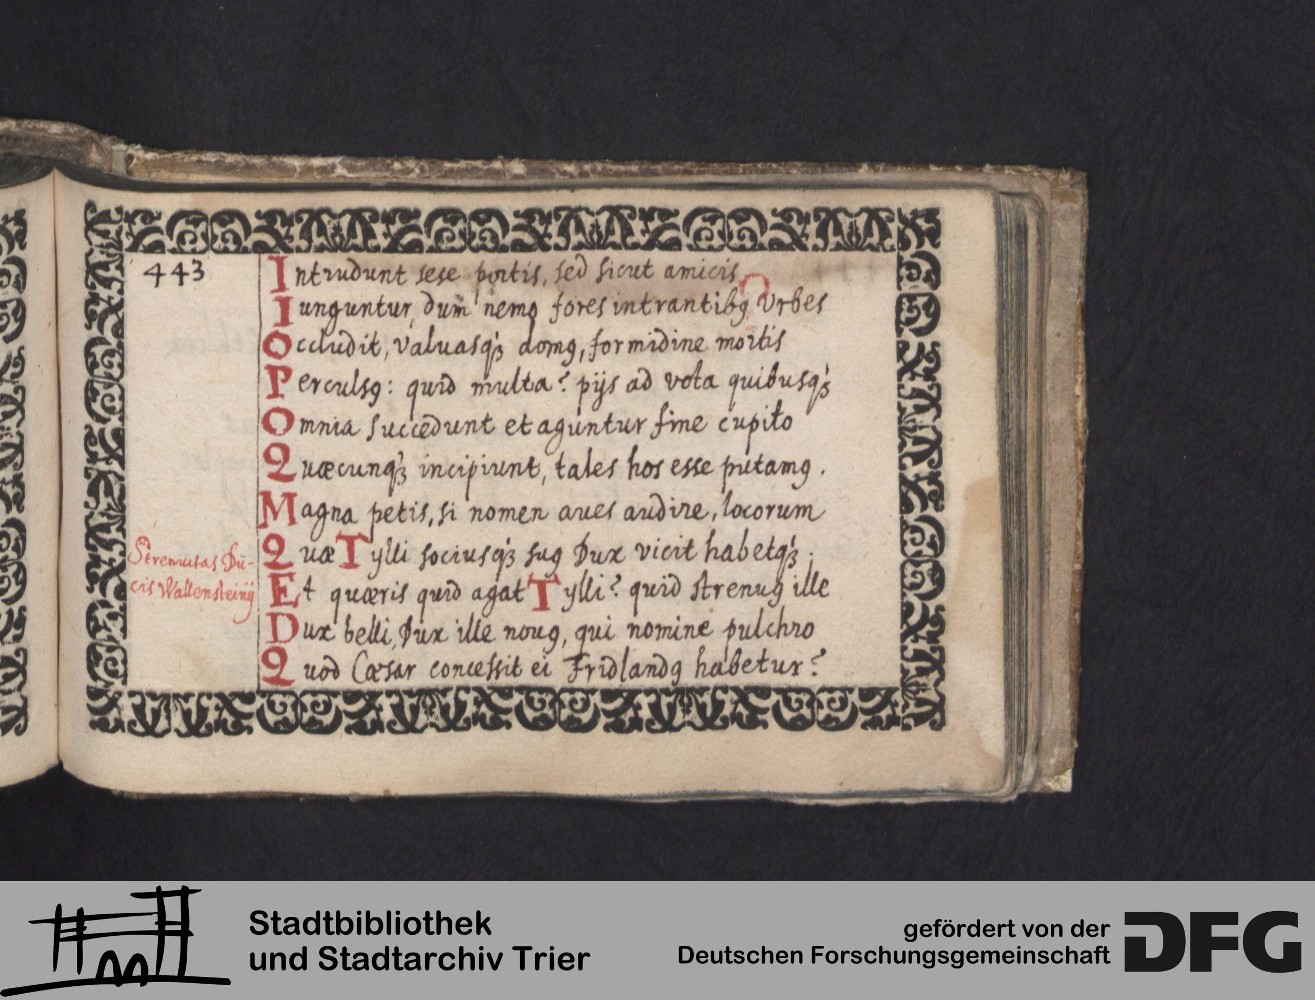 443
Intrudunt sese portis, sed sicut amicis
Iunguntur, dum nemo fores intrantibꝫ Vrbes
Occludit, valuasqꝫ domꝰ, formidine mortis
Perculsꝰ: quid multa? pijs ad vota quibusqꝫ
Omnia succedunt et aguntur fine cupito
Quæcunqꝫ incipiunt, tales hos esse putamꝰ.
Magna petis, si nomen aues audire, locorum
Quæ Tylli sociusqꝫ suꝰ Dux vicit habetqꝫ;
Strenuitas Du-
cis Wallensteinij
Et quæris quid agat Tylli? quid strenuꝰ ille
Dux belli, Dux ille nouꝰ, qui nomine pulchro
Quod Cæsar concessit ei Fridlandꝰ habetur?
Stadtbibliothek
und Stadtarchiv Trier
gefördert von der
Deutschen Forschungsgemeinschaft
DFG